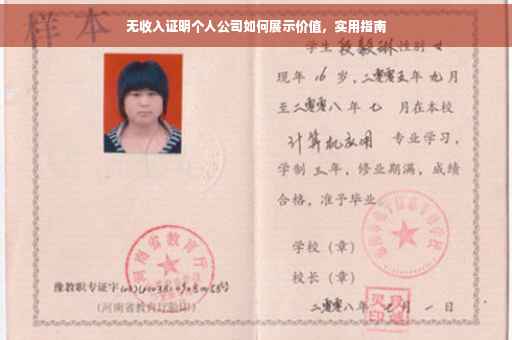 无收入证明个人公司如何展示价值，实用指南
样本
学生段毅琳性别女
现年16岁，二零零五年九月
至二零零八年七月在本校
计算机应用 专业学习，
学制三年，修业期满，成绩
合格，准予毕业。
学校（章）
校长（章）
二零零八年七月一日
河南省教育厅
豫教职专证字
（河南省教育厅验印）